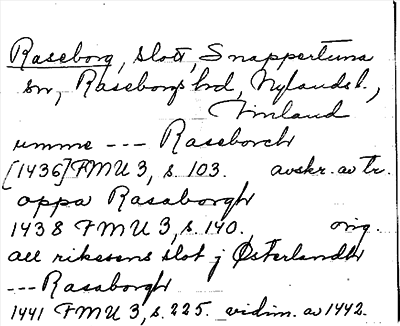 Raseborg, slott, Snappertuna
sn, Raseborgs hd, Nylands l.,
Finland
umme --- Raseborch
[1436] FMU 3, s. 103. avskr. av tr.
oppa Rasaborgh
1438 FMU 3, s. 140. orig.
all rikesens slot j Østerlandh
--- Rasaborgh
1441 FMU 3, s. 225. vidim. av 1442.